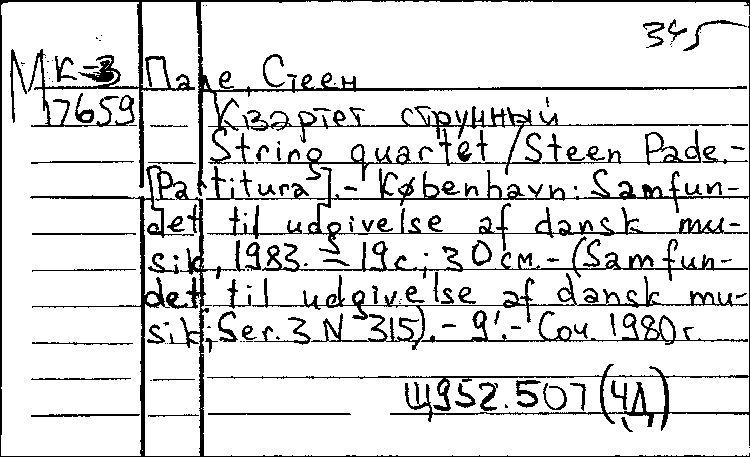 345
М К-3 Паде, Стеен
17659 Квартет струнный
String quartet / Steen Pade.-
[Partitura].- København: Samfun-
det til udgivelse af dansk mu-
sik, 1983. - 19 с.; 30 см. - (Samfun-
det til udgivelse af dansk mu-
sik; Ser. 3 N 315). - 9'. - Соч. 1980 г
Щ952.507(4Д)